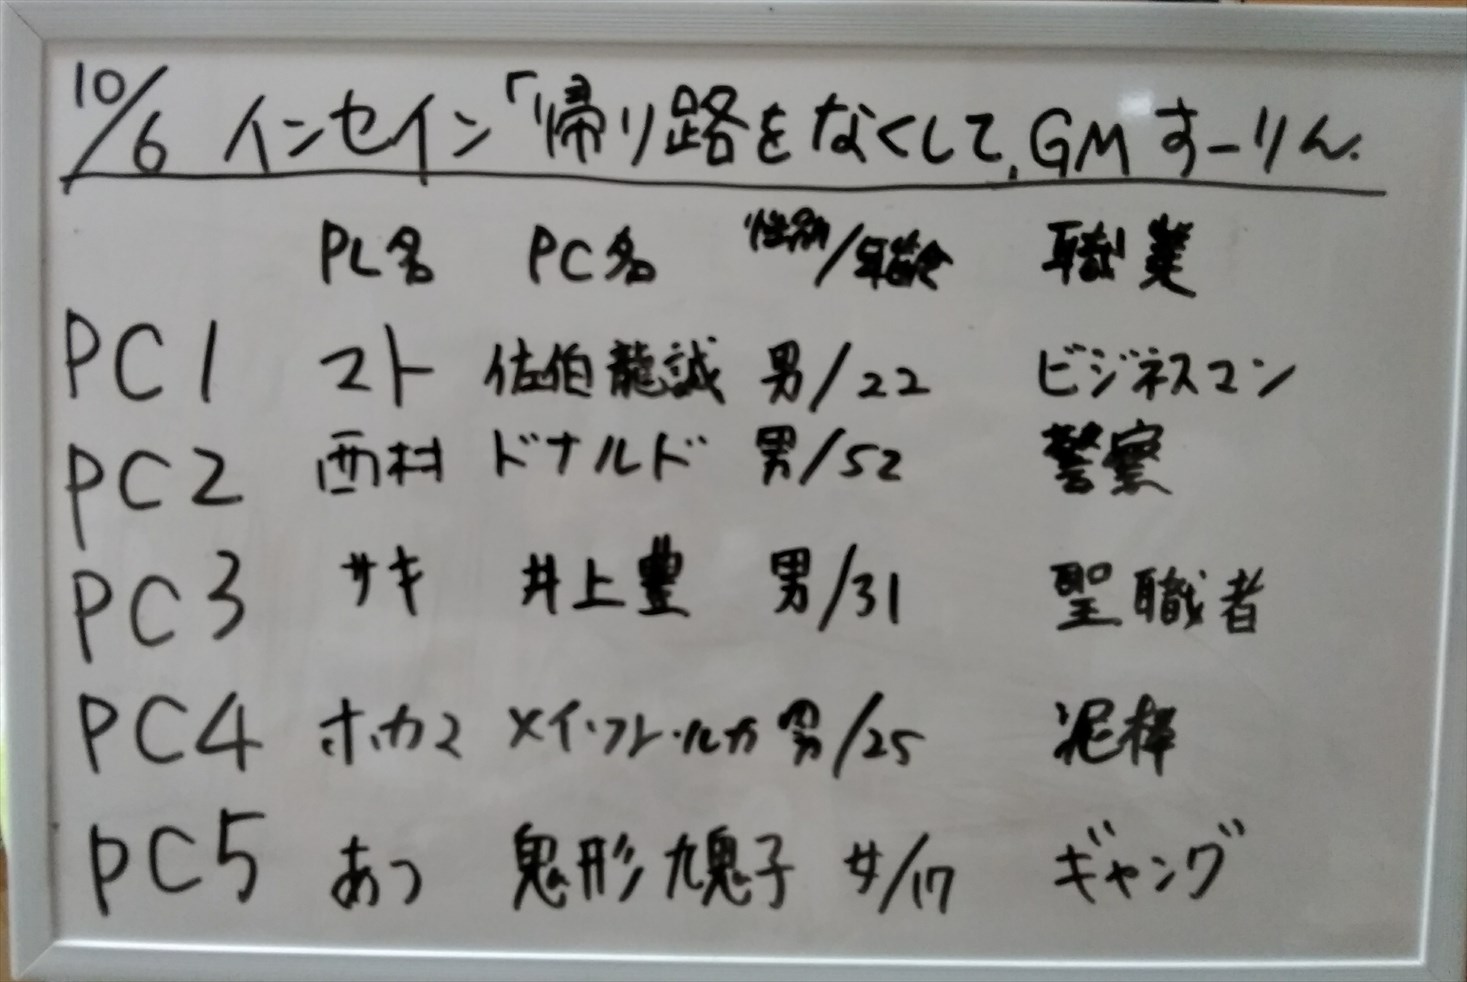 10/6 インセイン「帰り路をなくして」GM すーりん.
PL名 PC名 性別/年齢 職業
PC1 マト 佐伯龍誠 男/22 ビジネスマン
PC2 西村 ドナルド 男/52 警察
PC3 サキ 井上豊 男/31 聖職者
PC4 ホカマ メイ・フレ・ルカ 男/25 泥棒
PC5 あつ 鬼形 九鬼子 女/17 ギャング